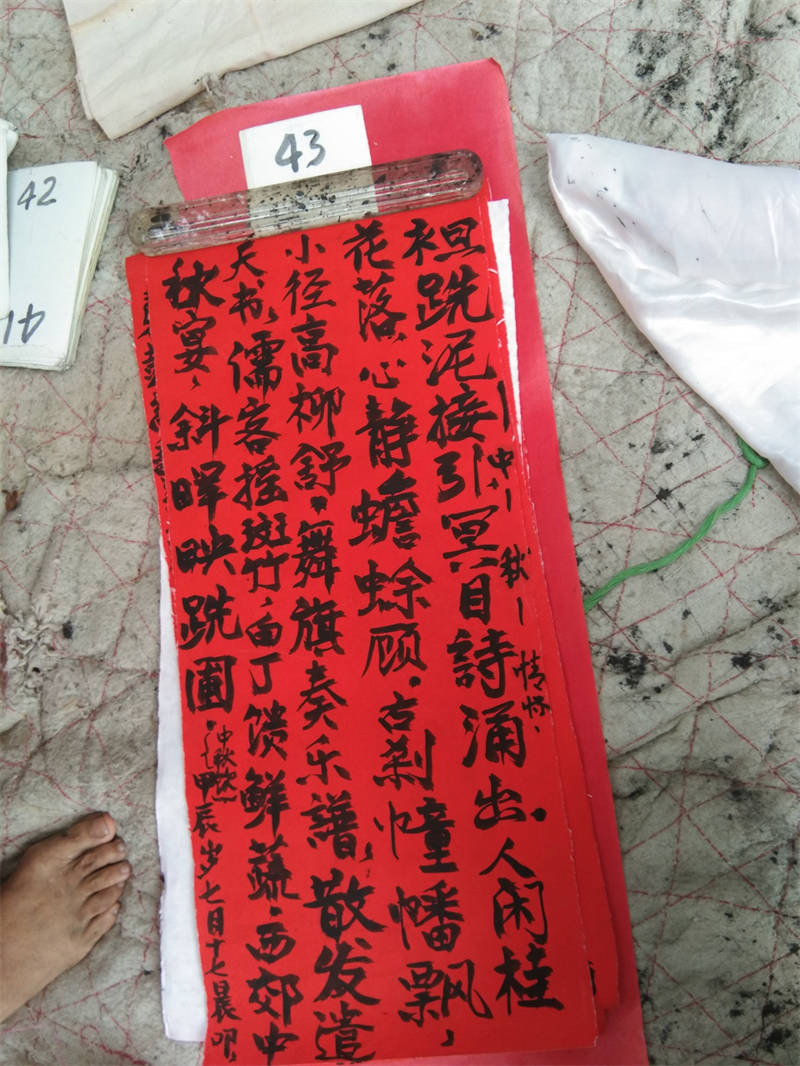 43
42
41
袒跣泥接引冥目詩涌出。人闲桂
花落,心静蟾蜍顾。古刹幢幡飘,
小径高柳舒。舞旗奏乐譜,散发遣
天书,儒客摇斑竹,白丁馈鲜蔬。西郊中
秋宴,斜晖映跣圃。
中秋
情怀
甲辰岁七月十七晨